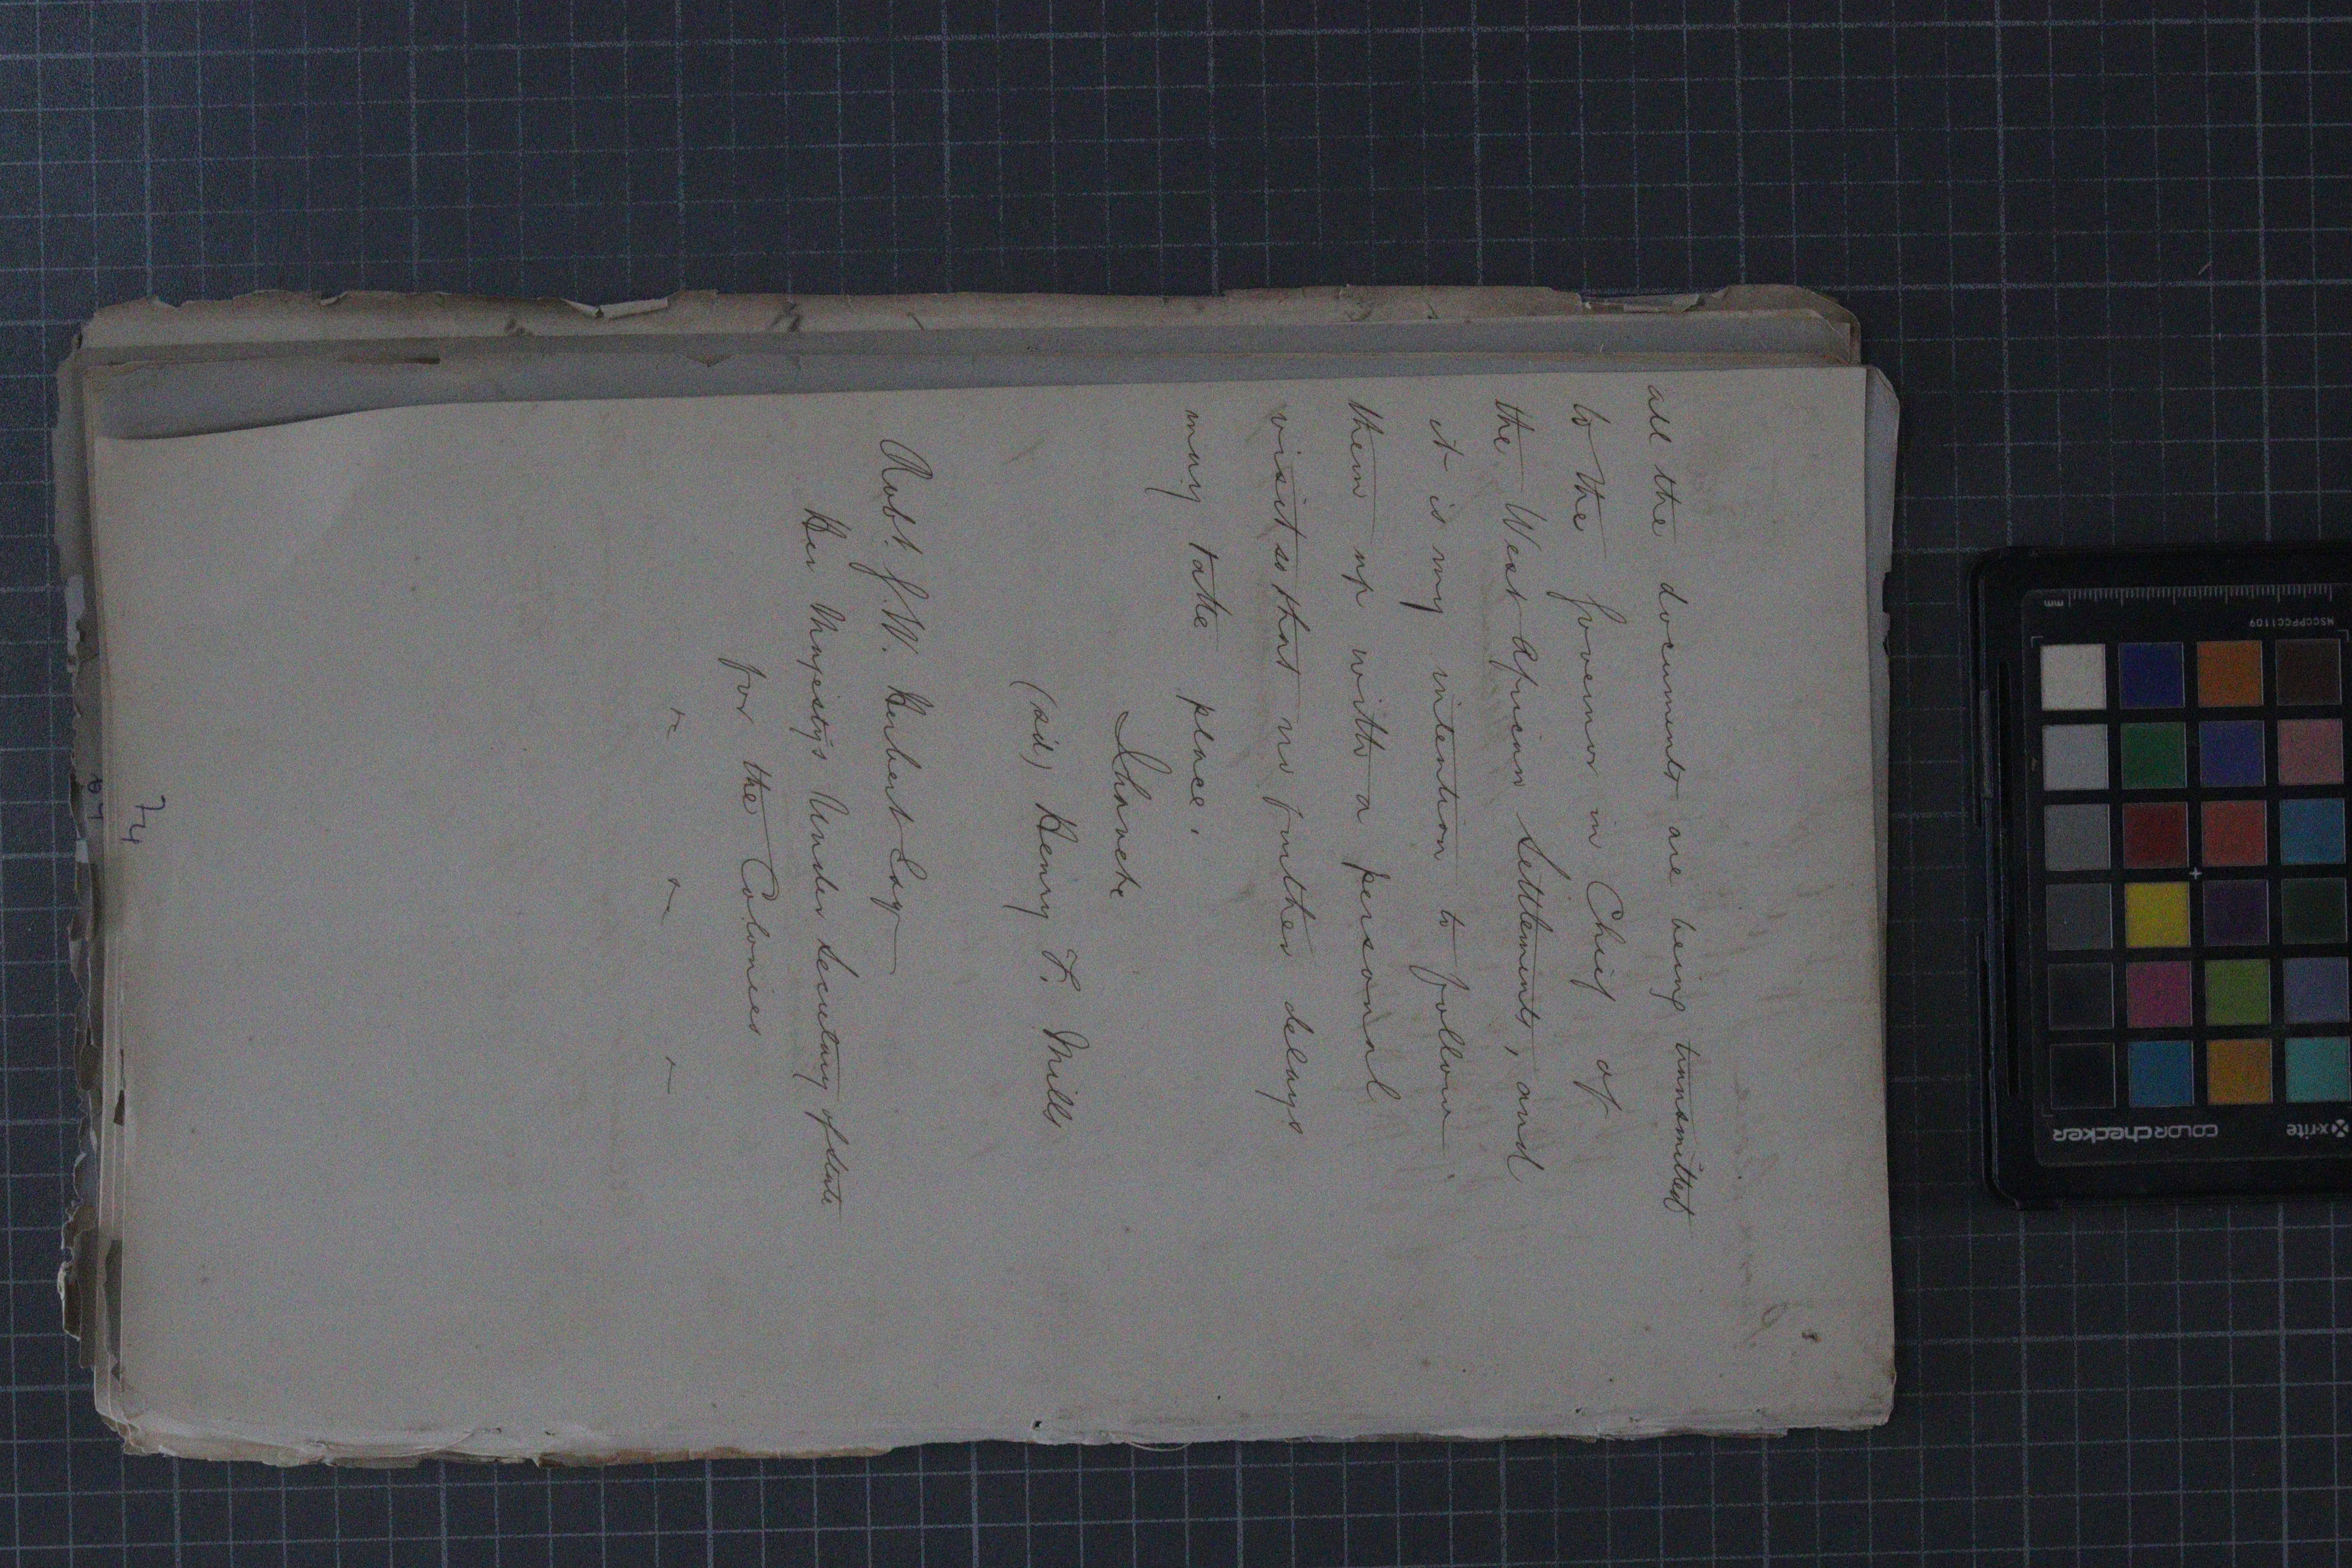 all the documents are being transmitted
to the Governor in Chief of
the West African Settlements, and
it is my intention to follow
them up with a personal
visit so that no further delays
may take place.
I have &c
(sd) Henry F. Mills
Robt. G. W. Herbert Esq
Her Majestys Under Secretary of State
for the Colonies
74
x-rite
colorchecker
MSCCPPCC1109
mm